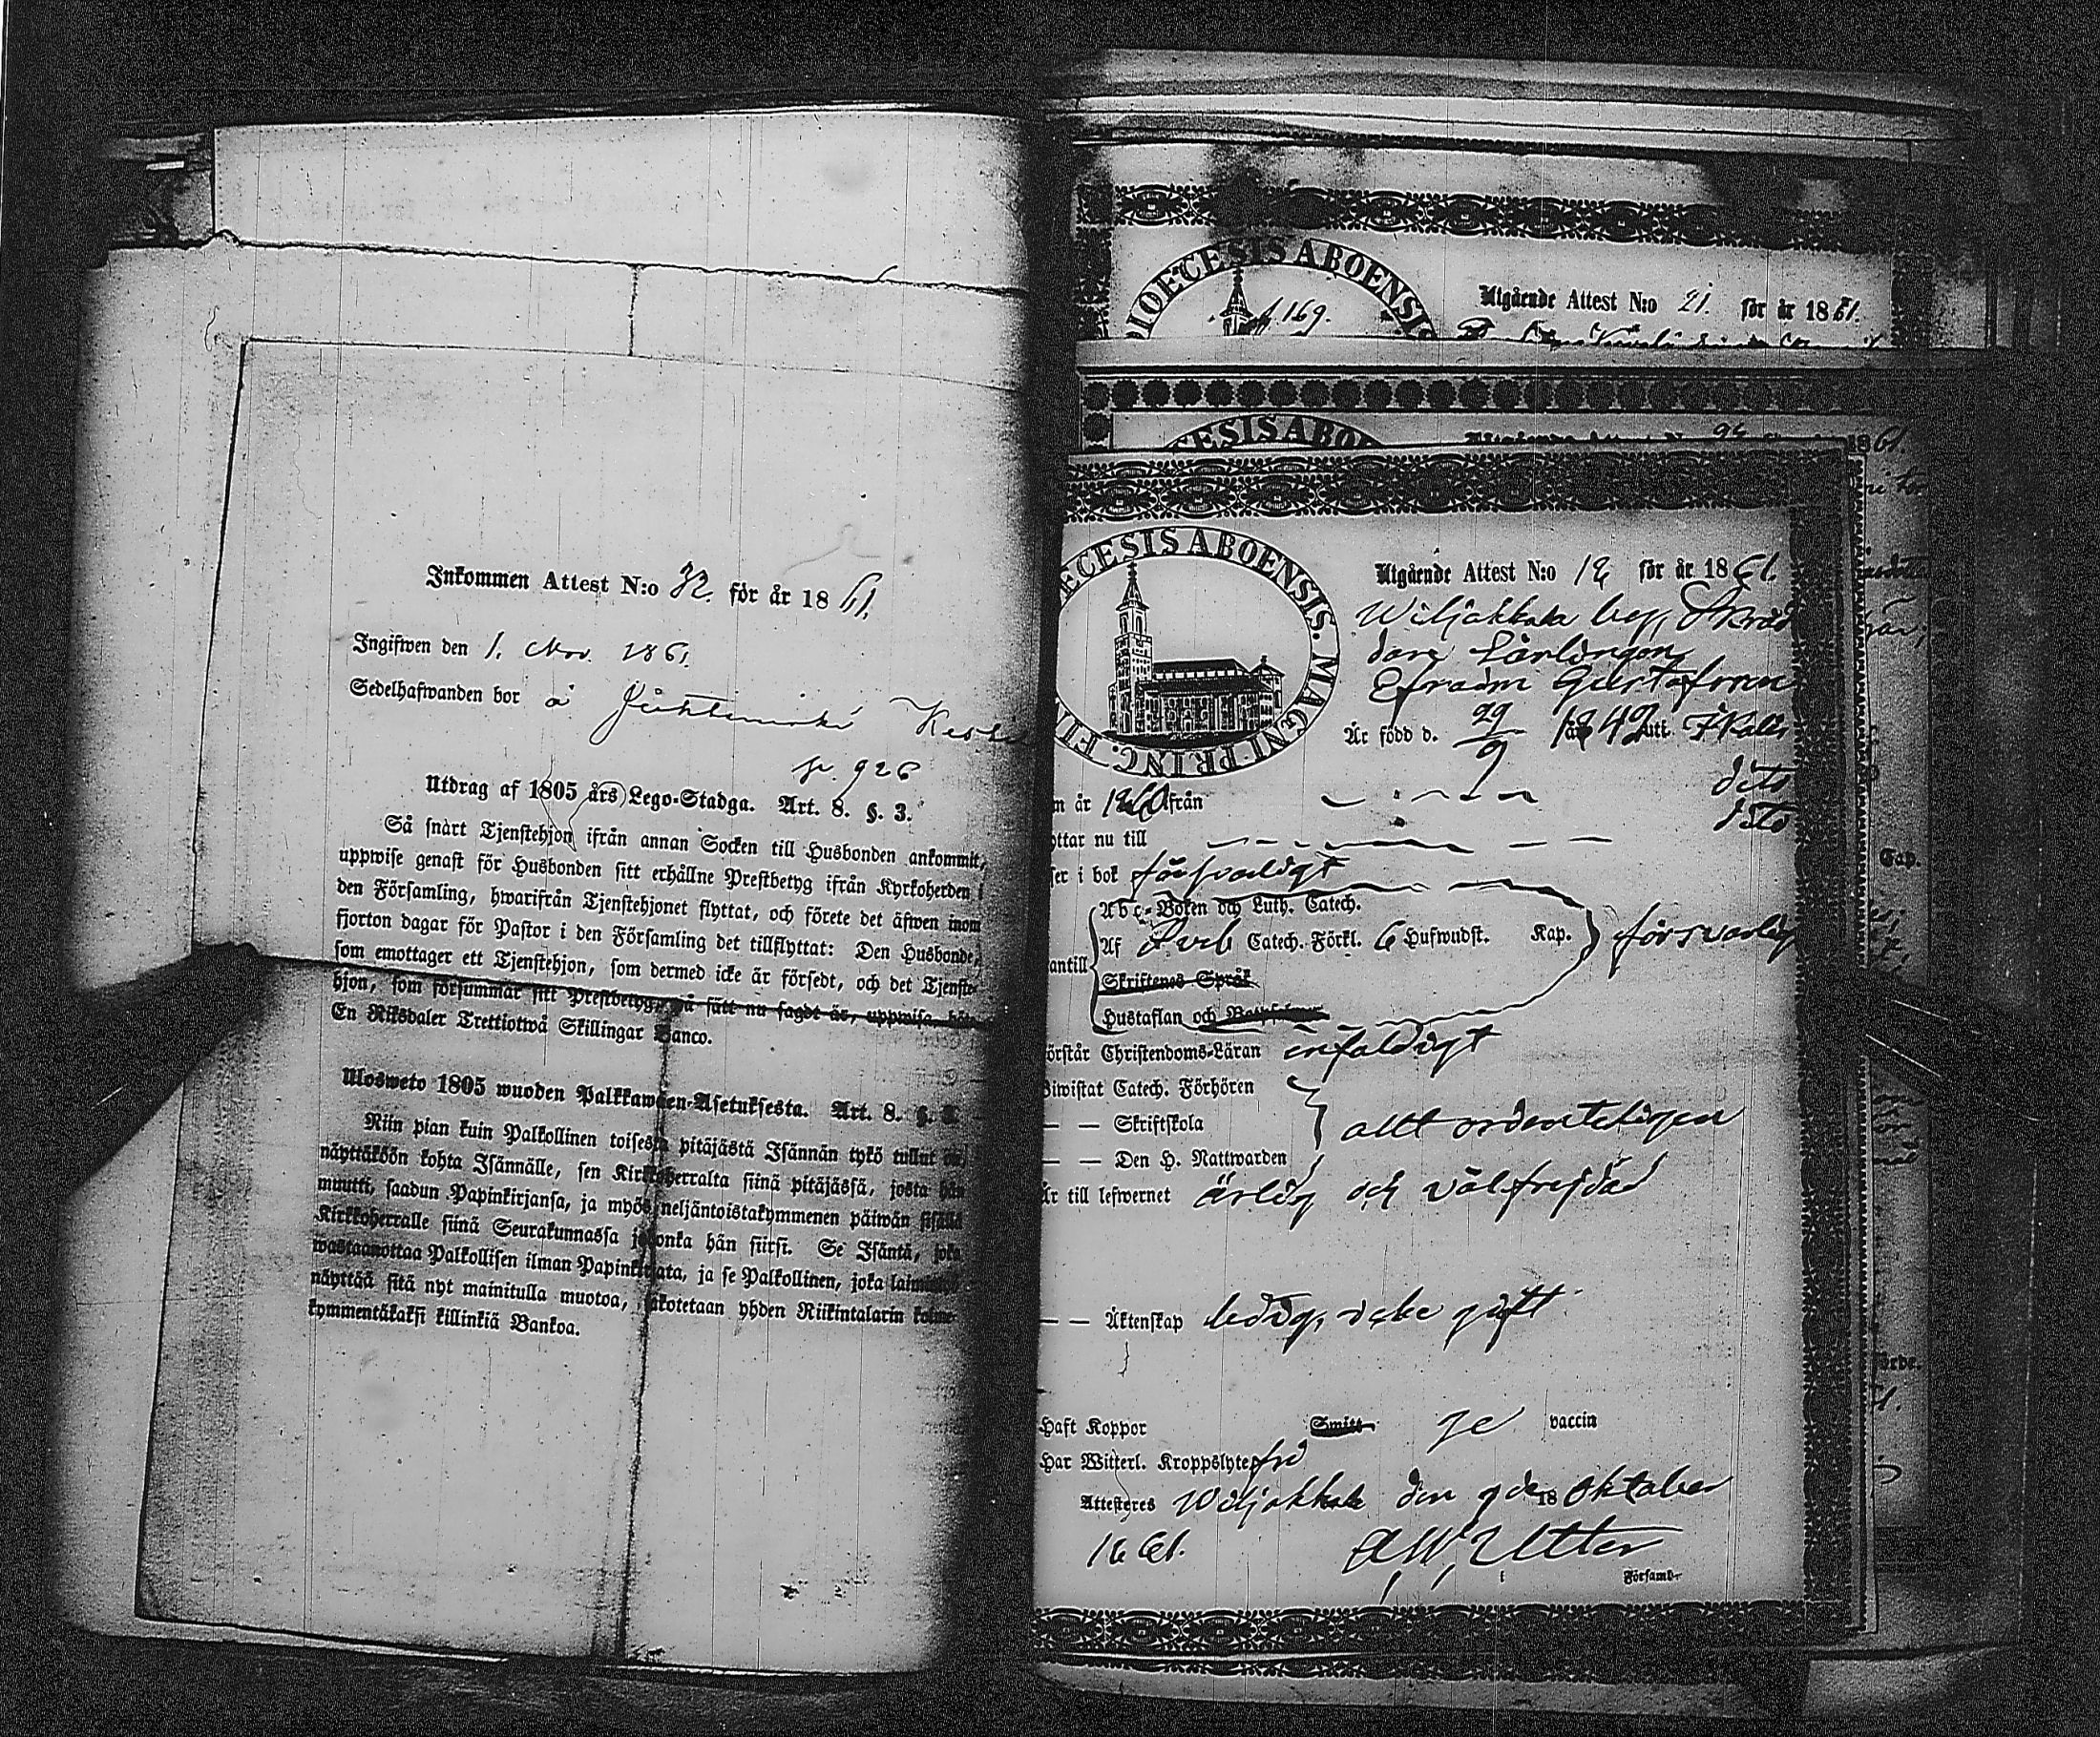 Inkommen Attest N:o 32. för år 1861.
Ingifwen den 1. Nov. 1861.
Sedelhafwanden bor å
p. 926
Utdrag af 1805 års Lego-Stadga. Art. 8. §. 3.
Så snart Tjenstehjon ifrån annan Socken till Husbonden ankommit,
uppwise genast för Husbonden sitt erhållne Prestbetyg ifrån Kyrkoherden i
den Församling, hwarifrån Tjenstehjonet flyttat, och förete det äfwen inom
fjorton dagar för Pastor i den Församling det tillflyttat: Den Husbonde,
som emottager ett Tjenstehjon, som dermed icke är försedt, och det Tjenste-
hjon, som försummar sitt Prestbetyg, på sätt nu sagdt är, uppwisa, böte
En Riksdaler Trettiotwå Skillingar Banco.
Ulosweto 1805 wuoden Palkkawäen-Asetuksesta. Art. 8. §. 3.
Niin pian kuin Palkollinen toisesta pitäjästä Isännän tykö tullut on,
näyttäköön kohta Isännälle, sen Kirkkoherralta siinä pitäjässä, josta hän
muutti, saadun Papinkirjansa, ja myös neljäntoistakymmenen päiwän sisällä
Kirkkoherralle siinä Seurakunnassa jo honka hän siirsi. Se Isäntä, joka
wastaanottaa Palkollisen ilman Papinkirjata, ja se Palkollinen, joka
näyttää sitä nyt mainitulla muotoa, sakotetaan yhden Riikintalarin kolme-
kymmentäkaksi killinkiä Bankoa.
DIOECESIS ABOENSIS
p. 169.
Utgående Attest N:o 21. för år 1861.
CESIS ABO
1861.
ECESIS ABOENSIS. MAGNI PRINC. FIN
Utgående Attest N:o 18 för år 1861.
Wiljakkala by, Skräd
dare Lärlingen
Efraim Gustafsson
Är född d. 29/9 1842 i
dito
n år 1860 från
dito
ottar nu till
ser i bok försvarligt
Abc-Boken och Luth. Catech.
Af Sveb Catech. Förkl. 6 Hufwudst. Kap. försvarlig
antill
Skriftenes Språk
Hustaflan och
örstår Christendoms-Läran enfaldigt
Biwistat Catech. Förhören
— — Skriftskola allt ordenteligen
— — Den H. Nattwarden
Är till lefwernet ärlig och välfrejdad
— — Äktenskap ledig, icke gift
Haft Koppor Smitt- ge vaccin
Har Witterl. Kroppslyte fri
Attesteras Wiljakkala den 9de 18 Oktober
1861. A W Utter
Församl-r